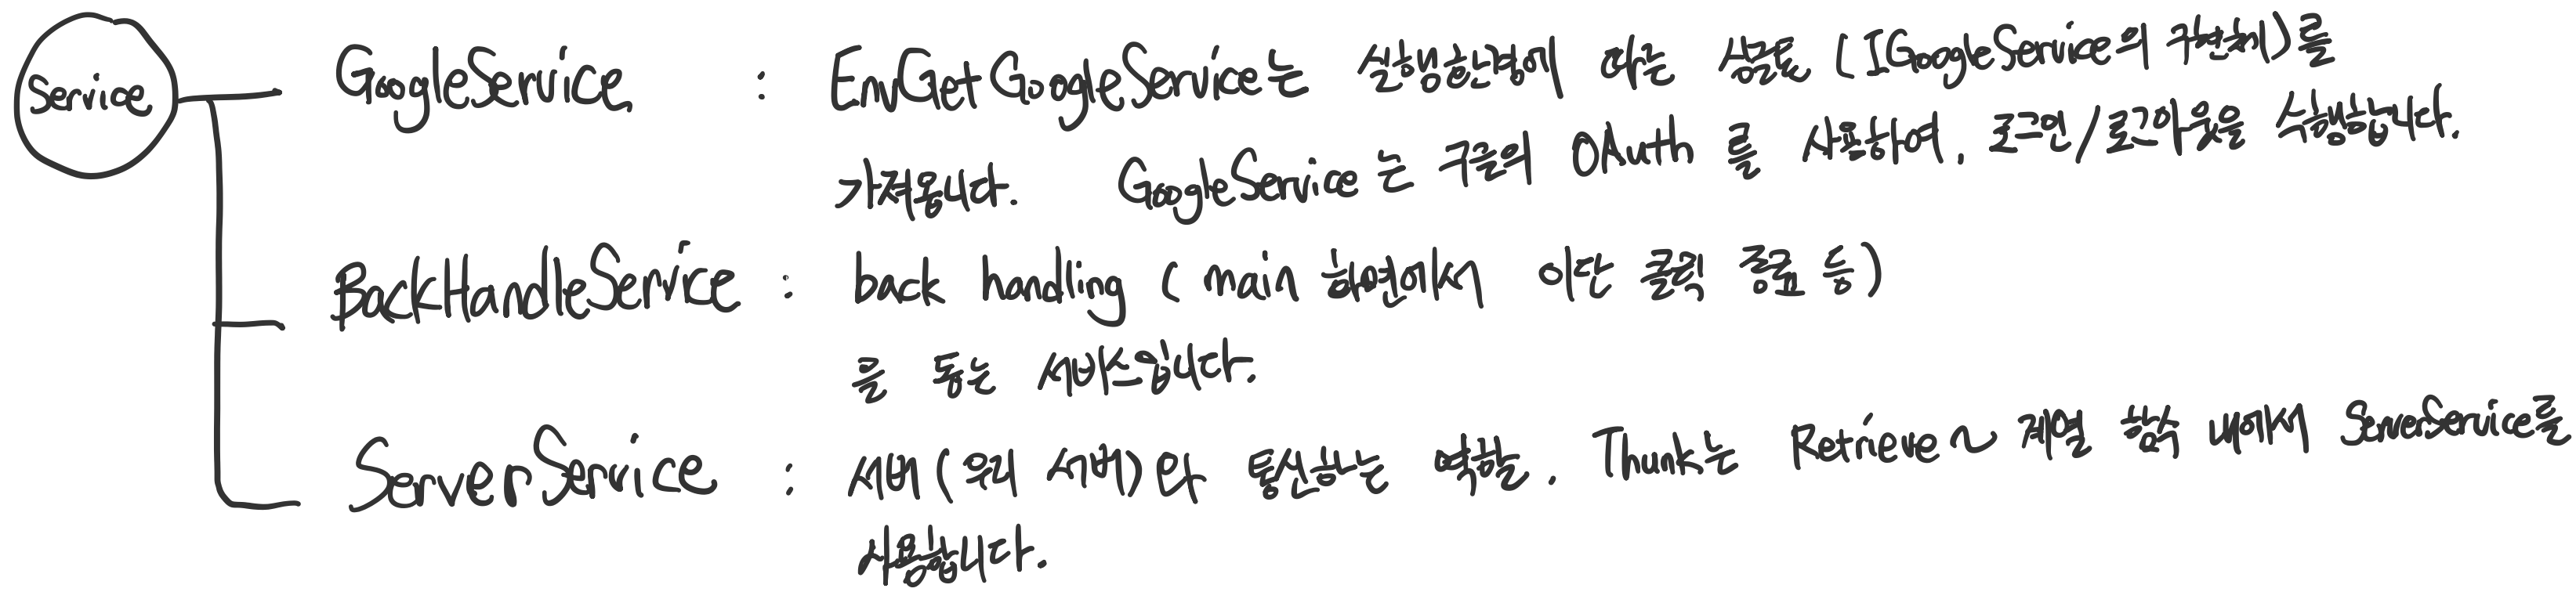 Service
GoogleService : EnvGetGoogleService는 실행환경에 따른 싱글톤 (IGoogleService의 구현체)를
가져옵니다. GoogleService는 구글의 OAuth 를 사용하여, 로그인/로그아웃을 수행합니다.
BackHandleService : back handling (main 화면에서 이단 클릭 종료 등)
를 돕는 서비스입니다.
ServerService : 서버(우리 서버)와 통신하는 역할. Thunk는 Retrieve~ 계열 함수 내에서 ServerService를
사용합니다.